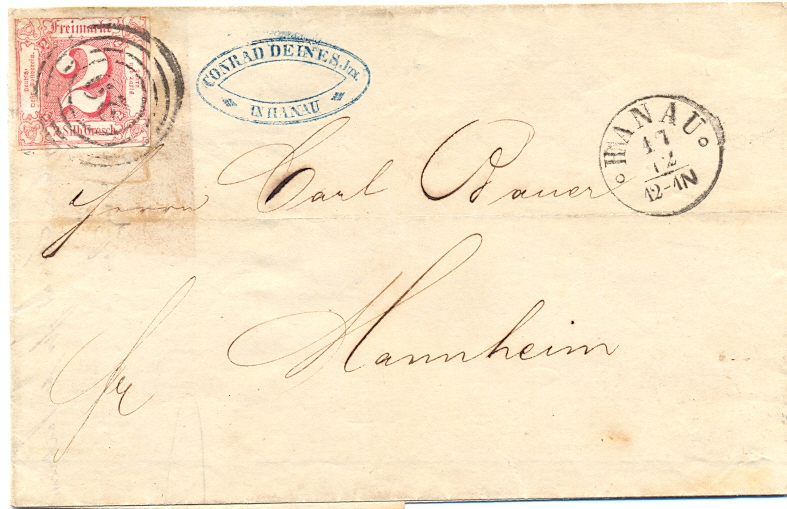 Freimarke
2
Silb. Grosch.
CONRAD DEINES Jun.
IN HANAU
HANAU
17
12
12-1N
Herrn Carl Bauer
fr Mannheim